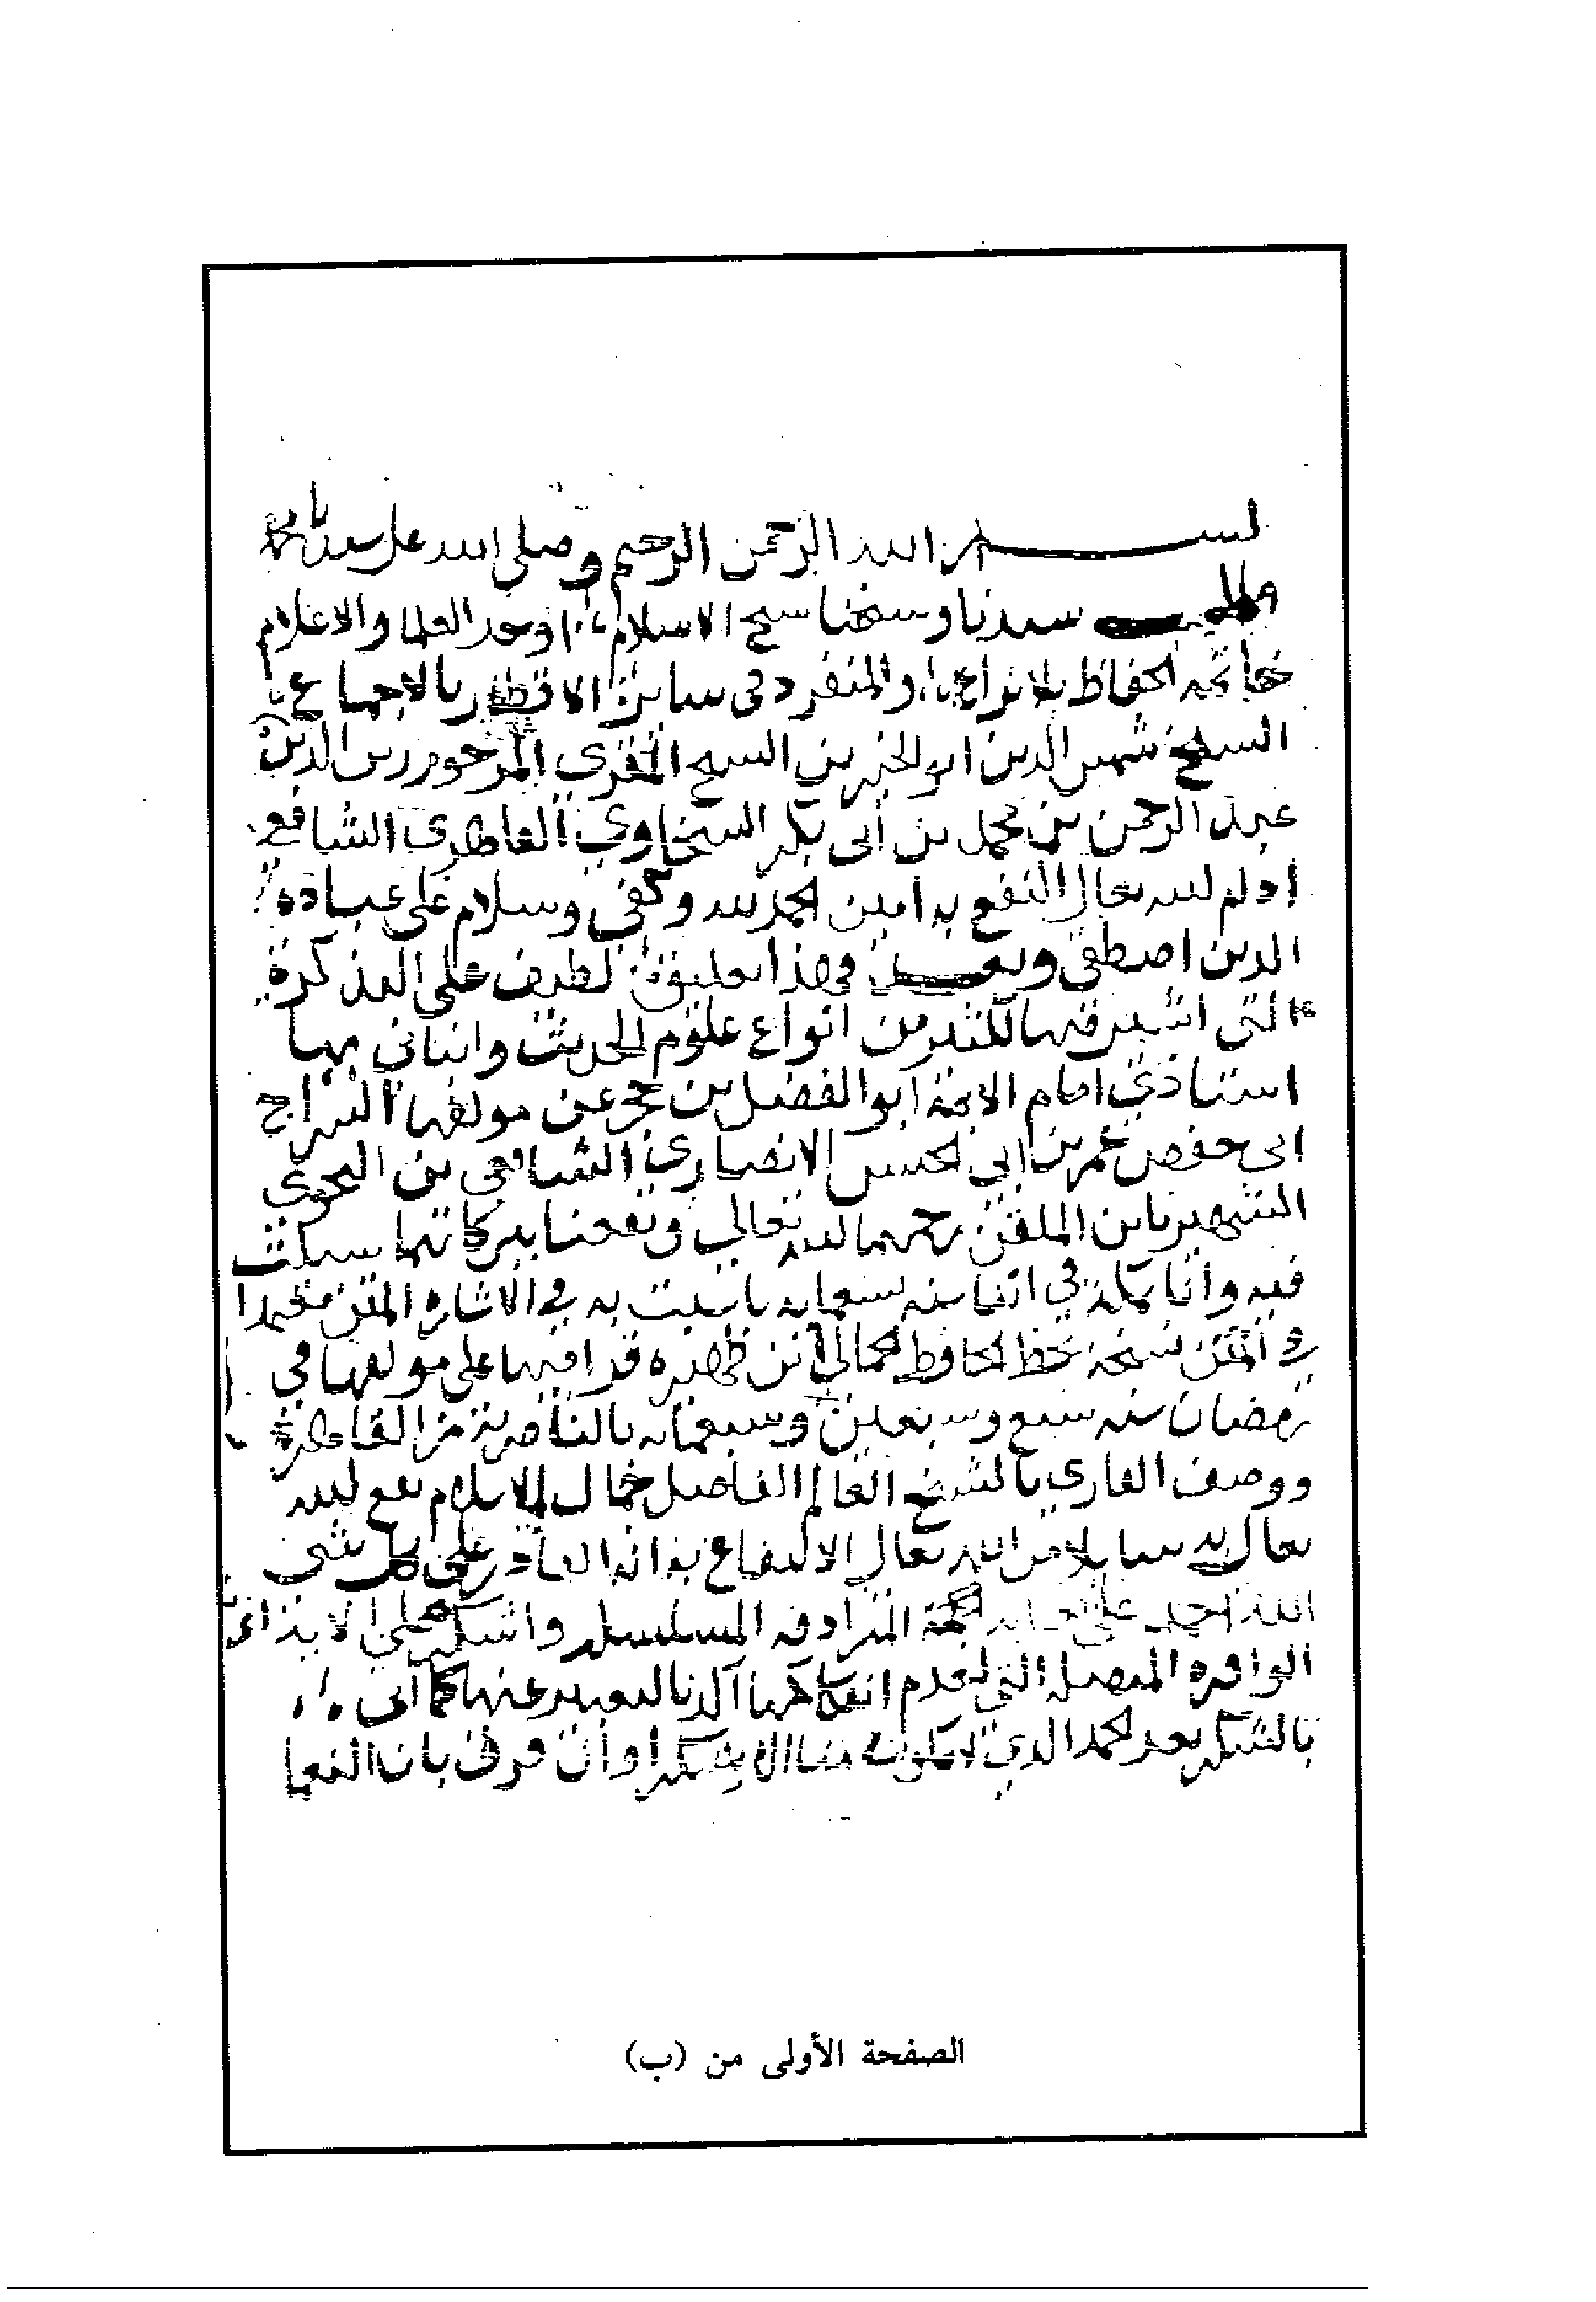 بسم الله الرحمن الرحيم وصلى الله على سيدنا محمد
سيدنا وشيخنا شيخ الاسلام اوحد العلما والاعلام
خاتمه الحفاظ بلا نزاع والمنفرد في سائر الاقطار بالاجماع
الشيخ شمس الدين ابو الخير بن الشيخ المقري المرحوم زين الدين
عبد الرحمن بن محمد بن أبى بكر السخاوي القاهري الشافعي
ادام الله تعالى النفع به امين الحمد لله وكفى وسلام على عباده
الدين اصطفى وبعد فهذا تعليق لطيف على التذكرة
التي اشير فيها لكثير من انواع علوم الحديث وانباني بها
استاذي امام الائمة ابو الفضل بن حجر عن مولفها السراج
ابي حفص عمر بن ابي الحسن الانصاري الشافعي بن النحوي
الشهير بابن الملقن رحمهما الله تعالى ونفعنا ببركاتهما
فيه وانا بمكة في اثنا سنه به في الاشاره المتن معتمدا
في المتن نسخة بخط الحافظ الجمالي ابن ظهيره قراءتها على مولفها في
رمضان سنه سبع وسبعين وسبعمايه بالناصرية من القاهرة
ووصف القاري بالشيخ العالم الفاضل جمال الاسلام نفع الله
تعالى به سايلا من الله تعالى الانتفاع به انه القادر على كل شي
الله احمد على المترادفه المسلسله واشكره على
الوافره المتصله التي لعدم عنها كما أتى
بالشكر بعد الحمد الذي وان فرق بان النعما
الصفحة الأولى من (ب)